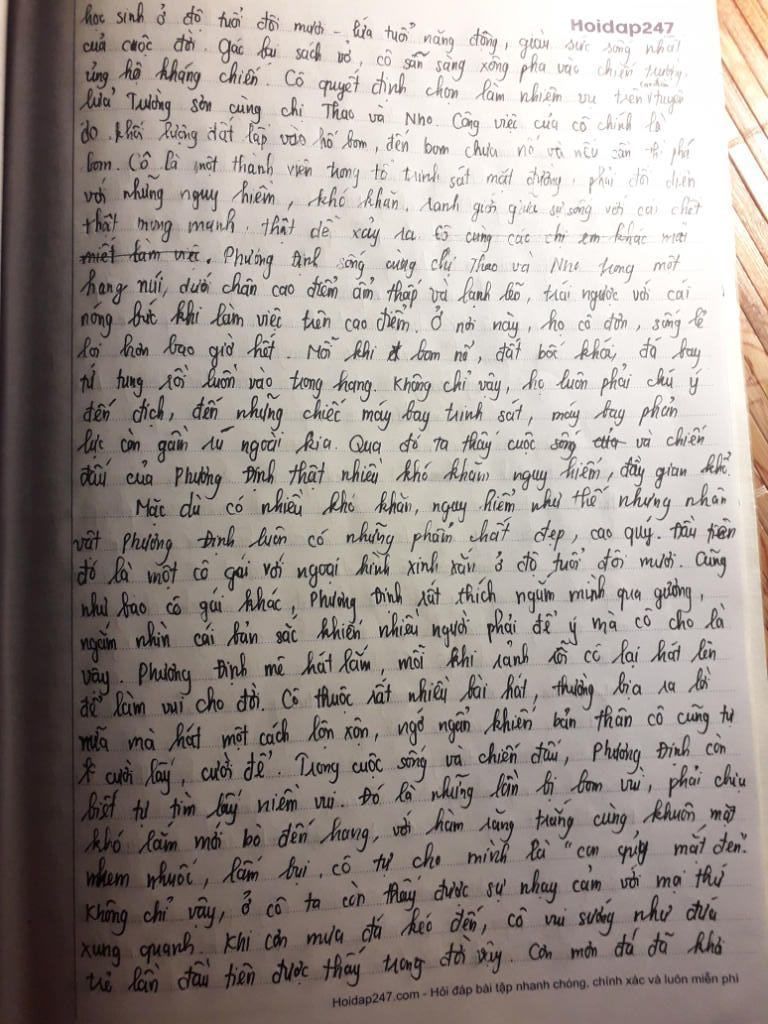 học sinh ở độ tuổi đôi mươi - lứa tuổi năng động, giàu sức sống nhất
Hoidap247
của cuộc đời. Gác lại sách vở, cô sẵn sàng xông pha vào chiến trường,
ủng hộ kháng chiến. Cô quyết định chọn làm nhiệm vụ trên tuyến
lửa Trường Sơn cùng chị Thao và Nho. Công việc của cô chính là
đo khối lượng đất lấp vào hố bom, đếm bom chưa nổ và nếu cần thì phá
bom. Cô là một thành viên trong tổ trinh sát mặt đường, phải đối diện
với những nguy hiểm, khó khăn, ranh giới giữa sự sống với cái chết
thật mong manh, thật dễ xảy ra. Cô cùng các chị em khác mải
miết làm việc. Phương Định sống cùng chị Thao và Nho trong một
hang núi, dưới chân cao điểm ẩm thấp và lạnh lẽo, trái ngược với cái
nóng bức khi làm việc trên cao điểm. Ở nơi này, họ cô đơn, sống lẻ
loi hơn bao giờ hết. Mỗi khi bom nổ, đất bốc khói, đá bay
tứ tung rồi luồn vào trong hang. Không chỉ vậy, họ luôn phải chú ý
đến địch, đến những chiếc máy bay trinh sát, máy bay phản
lực còn gầm rú ngoài kia. Qua đó ta thấy cuộc sống của và chiến
đấu của Phương Định thật nhiều khó khăn nguy hiểm, đầy gian khổ.
Mặc dù có nhiều khó khăn, nguy hiểm như thế nhưng nhân
vật Phương Định luôn có những phẩm chất đẹp, cao quý. Đầu tiên
đó là một cô gái với ngoại hình xinh xắn ở độ tuổi đôi mươi. Cũng
như bao cô gái khác, Phương Định rất thích ngắm mình qua gương,
ngắm nhìn cái bản sắc khiến nhiều người phải để ý mà cô cho là
vậy. Phương Định mê hát lắm, mỗi khi rảnh rỗi cô lại hát lên
để làm vui cho đời. Cô thuộc rất nhiều bài hát, thường bịa ra lời
nữa mà hát một cách lộn xộn, ngớ ngẩn khiến bản thân cô cũng tự
cười lấy, cười để. Trong cuộc sống và chiến đấu, Phương Định còn
biết tự tìm lấy niềm vui. Đó là những lần bị bom vùi, phải chịu
khó lắm mới bò đến hang, với hàm răng trắng cùng khuôn mặt
nhem nhuốc, lấm bụi, cô tự cho mình là "con quỷ mắt đen".
Không chỉ vậy, ở cô ta còn thấy được sự nhạy cảm với mọi thứ
xung quanh. Khi cơn mưa đá kéo đến, cô vui sướng như đứa
trẻ lần đầu tiên được thấy trong đời vậy. Cơn mưa đá đã khơi
Hoidap247.com - Hỏi đáp bài tập nhanh chóng, chính xác và luôn miễn phí